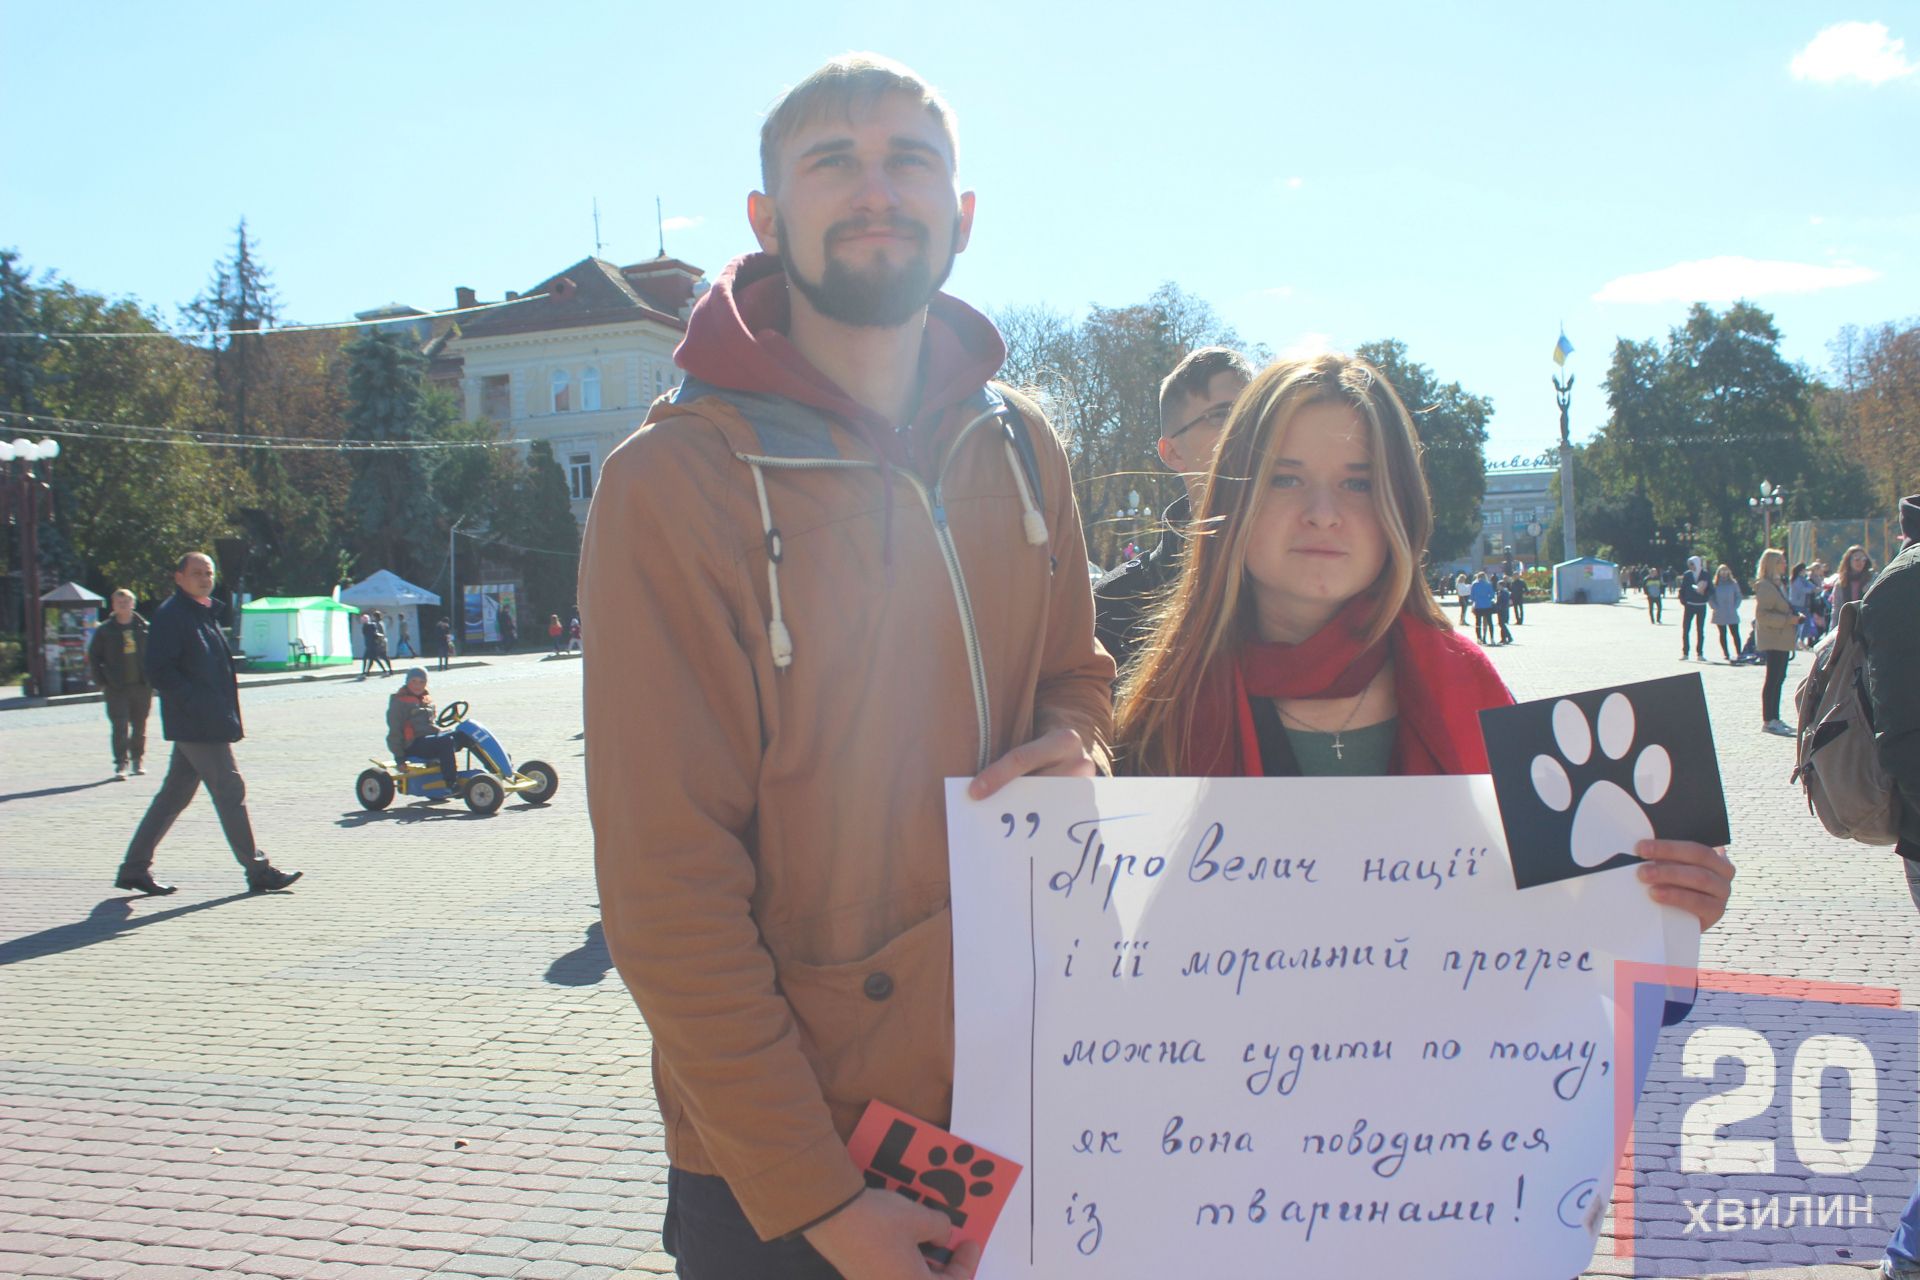 „Про велич нації
і її моральний прогрес
можна судити по тому,
як вона поводиться
із тваринами! ©
20
ХВИЛИН